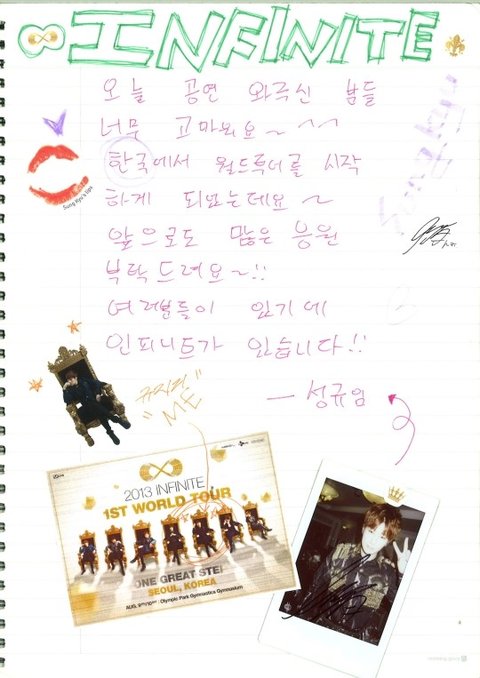 INFINITE
오늘 공연 와주신 분들
너무 고마워요~ ^^
한국에서 월드투어를 시작
하게 되었는데요~
앞으로도 많은 응원
부탁드려요~!!
여러분들이 있기에
인피니트가 있습니다!!
- 성규임
Sung Kyu's lips
Sung kyu
"ME"
2013 INFINITE
1ST WORLD TOUR
ONE GREAT STEP
SEOUL, KOREA
Olympic Park Gymnastics Gymnasium